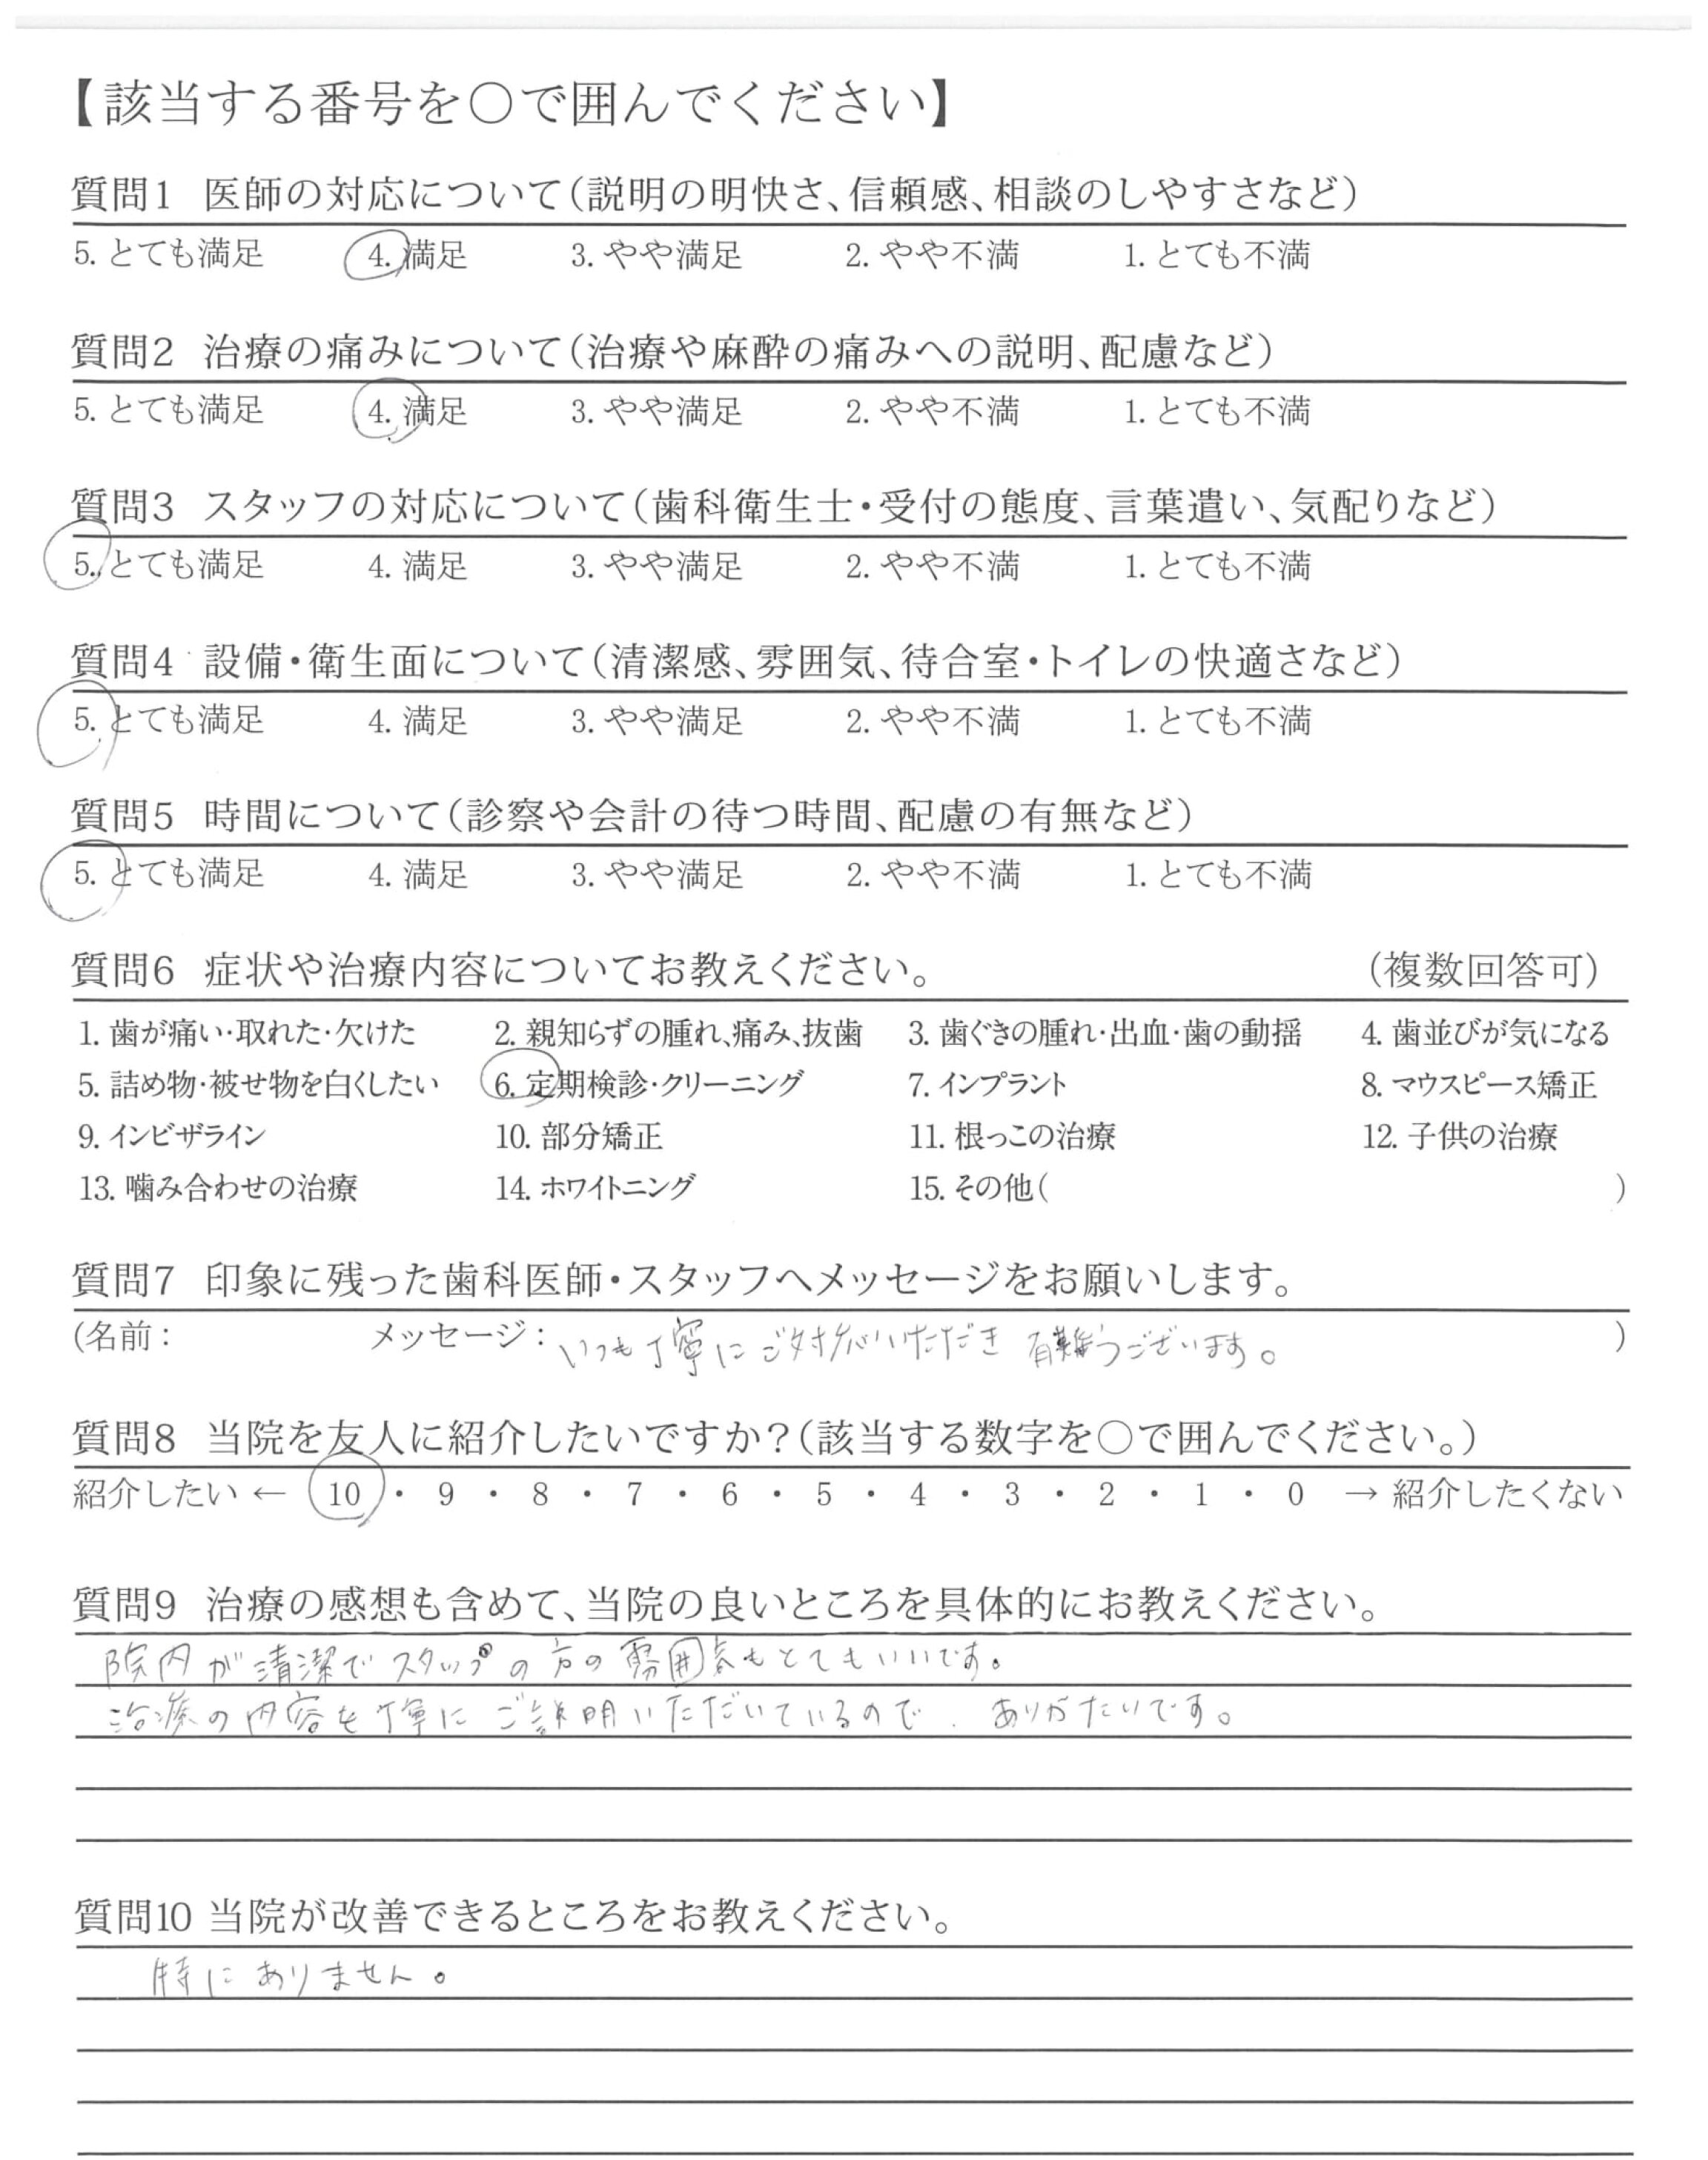 【該当する番号を〇で囲んでください】
質問1 医師の対応について(説明の明快さ、信頼感、相談のしやすさなど)
5. とても満足 4. 満足 3. やや満足 2. やや不満 1. とても不満
質問2 治療の痛みについて(治療や麻酔の痛みへの説明、配慮など)
5. とても満足 4. 満足 3. やや満足 2. やや不満 1. とても不満
質問3 スタッフの対応について(歯科衛生士・受付の態度、言葉遣い、気配りなど)
5. とても満足 4. 満足 3. やや満足 2. やや不満 1. とても不満
質問4 設備・衛生面について(清潔感、雰囲気、待合室・トイレの快適さなど)
5. とても満足 4. 満足 3. やや満足 2. やや不満 1. とても不満
質問5 時間について(診察や会計の待つ時間、配慮の有無など)
5. とても満足 4. 満足 3. やや満足 2. やや不満 1. とても不満
質問6 症状や治療内容についてお教えください。 (複数回答可)
1. 歯が痛い・取れた・欠けた 2. 親知らずの腫れ、痛み、抜歯 3. 歯ぐきの腫れ・出血・歯の動揺 4. 歯並びが気になる
5. 詰め物・被せ物を白くしたい 6. 定期検診・クリーニング 7. インプラント 8. マウスピース矯正
9. インビザライン 10. 部分矯正 11. 根っこの治療 12. 子供の治療
13. 噛み合わせの治療 14. ホワイトニング 15. その他( )
質問7 印象に残った歯科医師・スタッフへメッセージをお願いします。
(名前: メッセージ: いつも丁寧にご対応いただき 有難うございます。 )
質問8 当院を友人に紹介したいですか?(該当する数字を〇で囲んでください。)
紹介したい ← 10 ・ 9 ・ 8 ・ 7 ・ 6 ・ 5 ・ 4 ・ 3 ・ 2 ・ 1 ・ 0 → 紹介したくない
質問9 治療の感想も含めて、当院の良いところを具体的にお教えください。
院内が清潔でスタッフの方の雰囲気もとてもいいです。
治療の内容を丁寧にご説明いただいているので、ありがたいです。
質問10 当院が改善できるところをお教えください。
特にありません。